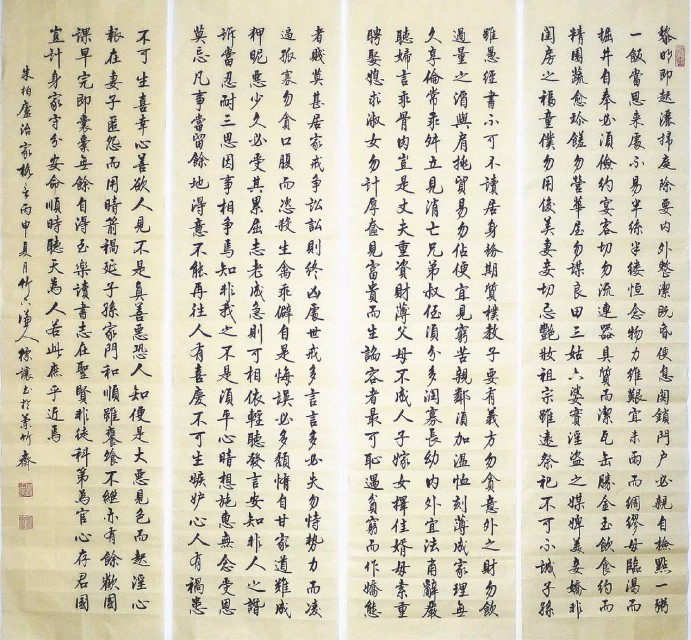 黎明即起灑掃庭除要內外整潔既昏便息關鎖門戶必親自檢點一粥
一飯當思來處不易半絲半縷恆念物力維艱宜未雨而綢繆毋臨渴而
掘井自奉必須儉約宴客切勿流連器具質而潔瓦缶勝金玉飲食約而
精園蔬愈珍饈勿營華屋勿謀良田三姑六婆實淫盜之媒婢美妾嬌非
閨房之福童僕勿用俊美妻妾切忌艷妝祖宗雖遠祭祀不可不誠子孫
雖愚經書不可不讀居身務期質樸教子要有義方勿貪意外之財勿飲
過量之酒與肩挑貿易勿佔便宜見窮苦親鄰須加溫恤刻薄成家理無
久享倫常乖舛立見消亡兄弟叔侄須分多潤寡長幼內外宜法肅辭嚴
聽婦言乖骨肉豈是丈夫重資財薄父母不成人子嫁女擇佳婿毋索重
聘娶媳求淑女勿計厚奩見富貴而生諂容者最可恥遇貧窮而作驕態
者賤莫甚居家戒爭訟訟則終凶處世戒多言言多必失勿恃勢力而凌
逼孤寡勿貪口腹而恣殺生禽乖僻自是悔誤必多頹惰自甘家道難成
狎昵惡少久必受其累屈志老成急則可相依輕聽發言安知非人之譖
訴當忍耐三思因事相爭焉知非我之不是須平心暗想施惠無念受恩
莫忘凡事當留餘地得意不能再往人有喜慶不可生嫉妒心人有禍患
不可生喜幸心善欲人見不是真善惡恐人知便是大惡見色而起淫心
報在妻子匿怨而用暗箭禍延子孫家門和順雖饔飧不繼亦有餘歡國
課早完即囊橐無餘自得至樂讀書志在聖賢非徒科第為官心存君國
豈計身家守分安命順時聽天為人若此庶乎近焉
朱柏廬治家格言丙申夏月竹人徐書於竹齋